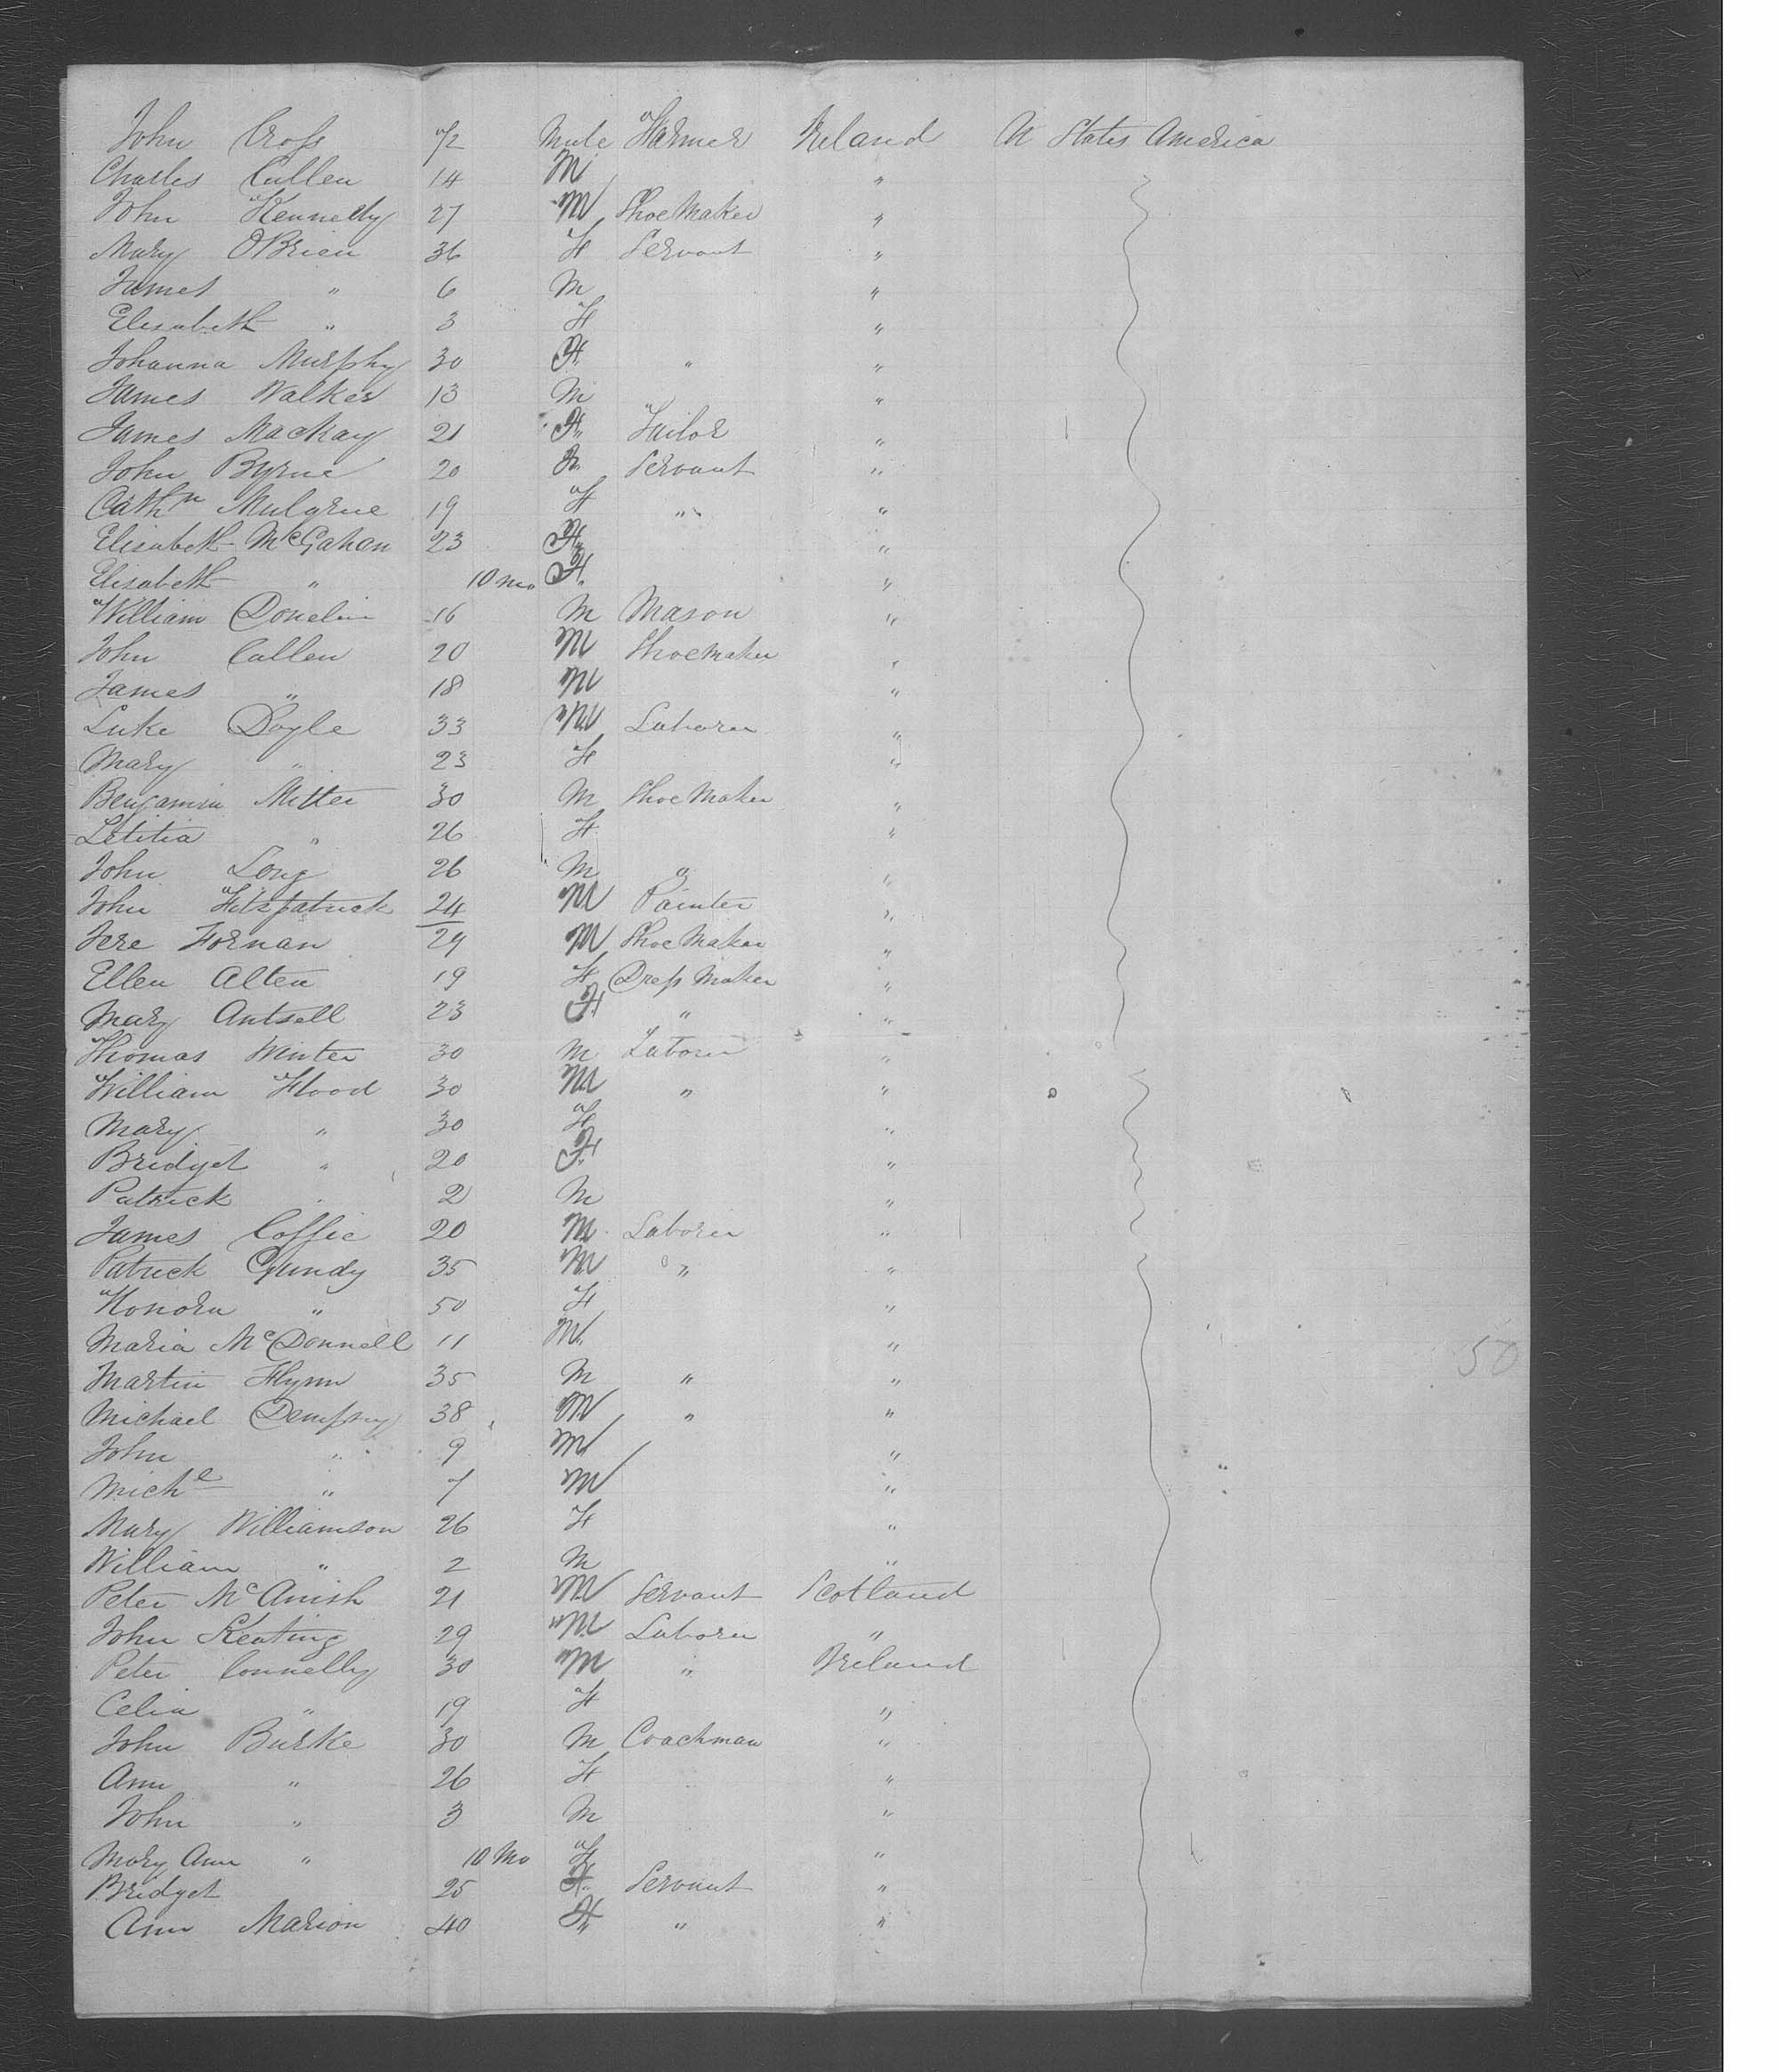 John Cross Male Farmer Ireland U States America
Charles Cullen 14 M "
John Kennedy 27 M Shoe Maker "
Mary O'Brien 36 F Servant "
James " 6 M "
Elisabeth " 3 F "
Johanna Murphy 30 F " "
James Walker 13 M "
James Mackay 21 F Tailor "
John Byrne 20 Servant "
Cathn Mulgrue 19 F " "
Elisabeth McGahan 23 F "
Elisabeth " 10 mo F "
William Donelin 16 M Mason "
John Cullen 20 M Shoemaker "
James " 18 M "
Luke Doyle 33 M Laborer "
Mary " 23 F "
Benjamin Mitter 30 M Shoe Maker "
Letitia " 26 F "
John Long 26 M " "
John Fitzpatrick 24 M Painter "
Jere Fornan 29 M Shoe Maker "
Ellen Alten 19 F Dress Maker "
Mary Antsell 23 F " "
Thomas Winter 30 M Laborer "
William Flood 30 M " "
Mary " 30 F "
Bridget " 20 F "
Patrick " 2 M "
James Coffie 20 M Laborer "
Patrick Gundy 35 M " "
Honora " 50 F "
Maria McDonnell 11 M "
Martin Flynn 35 M " "
Michael Dempsey 38 M " "
John " 9 M "
Michl " 7 M "
Mary Williamson 26 F "
William " 2 M "
Peter McAnish 21 M Servant Scotland
John Keating 29 M Laborer "
Peter Connelly 30 M " Ireland
Celia " 19 F "
John Burke 30 M Coachman "
Ann " 26 F "
John " 3 M "
Mary Ann " 10 Mo F "
Bridget 25 F Servant "
Ann Marion 40 F " "
50